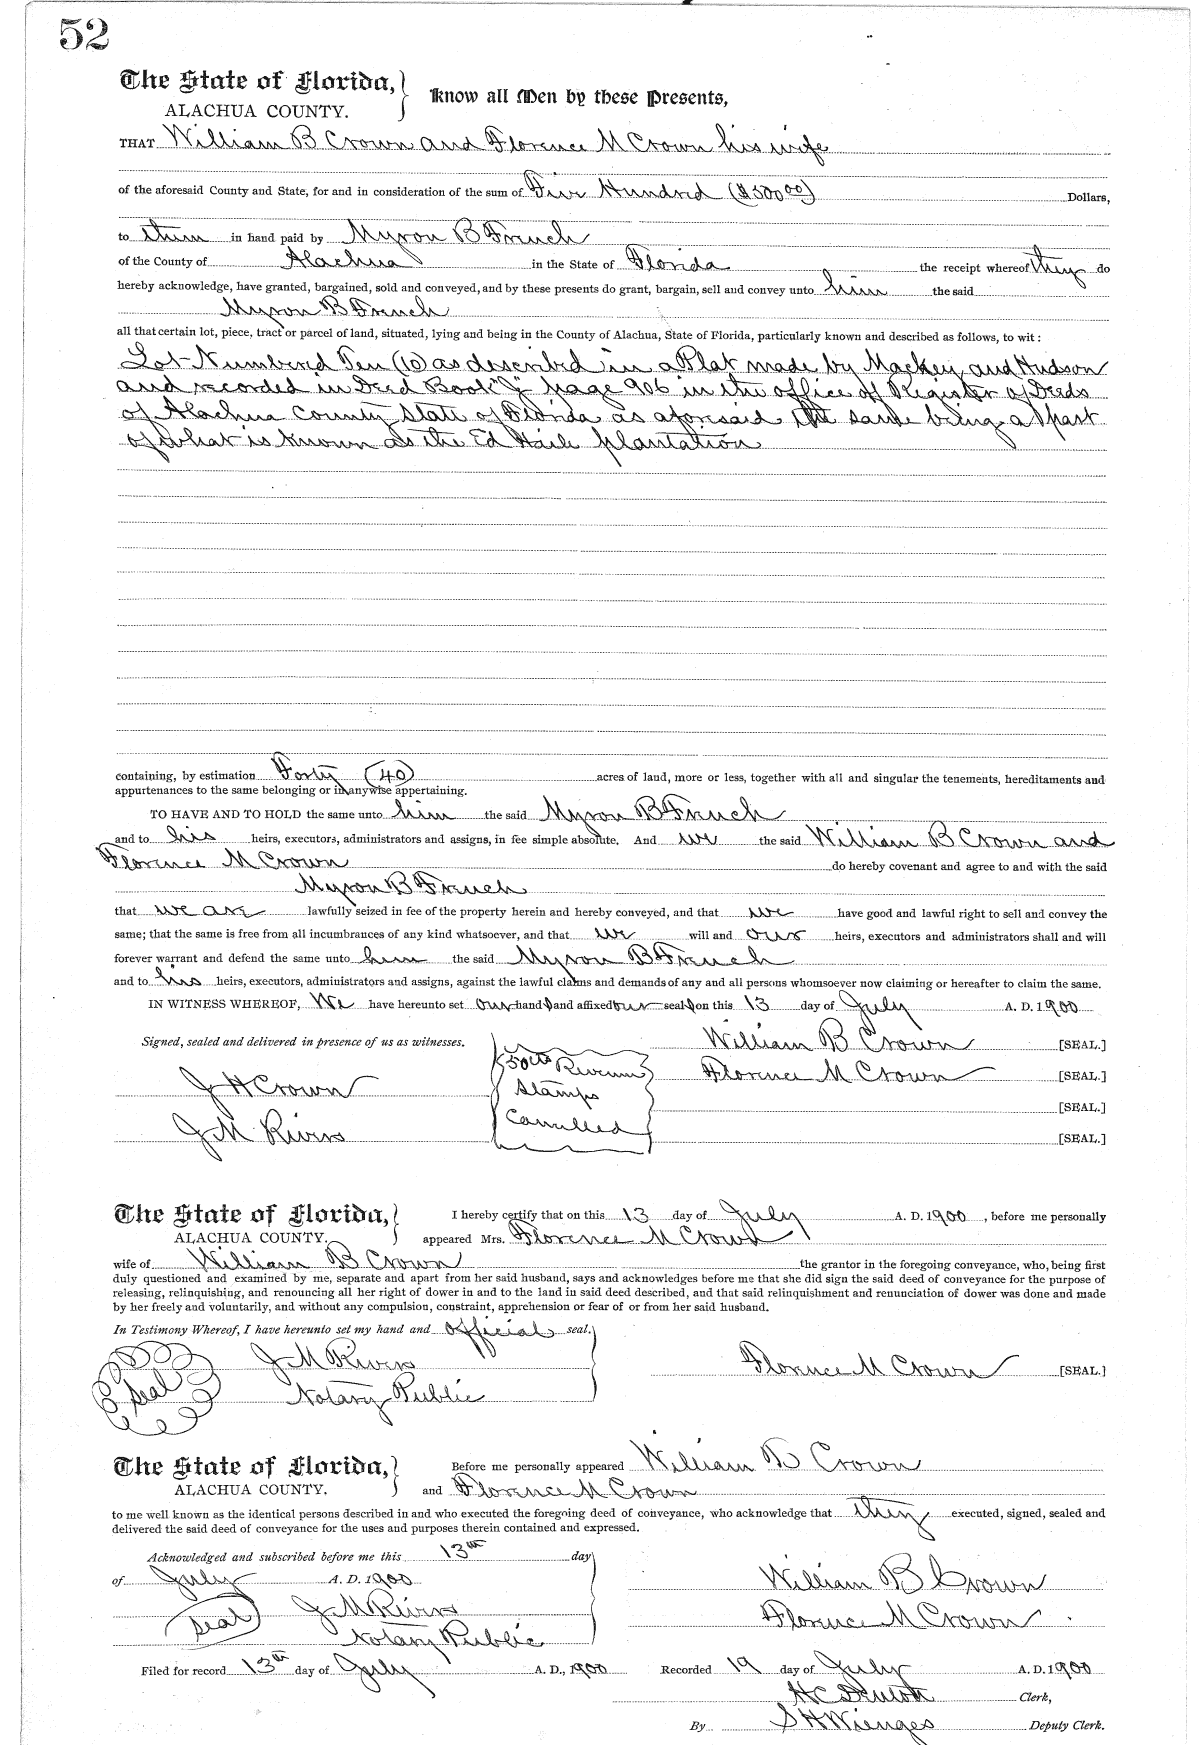 52
The State of Florida,
ALACHUA COUNTY.
Know all Men by these Presents,
THAT William B Crown and Florence M Crown his wife
of the aforesaid County and State, for and in consideration of the sum of Five Hundred ($500 00) Dollars,
to them in hand paid by Myron B French
of the County of Alachua in the State of Florida the receipt whereof they do
hereby acknowledge, have granted, bargained, sold and conveyed, and by these presents do grant, bargain, sell and convey unto him the said
Myron B French
all that certain lot, piece, tract or parcel of land, situated, lying and being in the County of Alachua, State of Florida, particularly known and described as follows, to wit:
Lot Numbered Ten (10) as described in a Plat made by Mackey and Hudson
and recorded in Deed Book "J" page 906 in the office of Register of Deeds
of Alachua County State of Florida as aforesaid the same being a part
of what is known as the Ed Haile plantation
containing, by estimation Forty (40) acres of land, more or less, together with all and singular the tenements, hereditaments and
appurtenances to the same belonging or in anywise appertaining.
TO HAVE AND TO HOLD the same unto him the said Myron B French
and to his heirs, executors, administrators and assigns, in fee simple absolute. And we the said William B Crown and
Florence M Crown do hereby covenant and agree to and with the said
Myron B French
that we are lawfully seized in fee of the property herein and hereby conveyed, and that we have good and lawful right to sell and convey the
same; that the same is free from all incumbrances of any kind whatsoever, and that we will and our heirs, executors and administrators shall and will
forever warrant and defend the same unto him the said Myron B French
and to his heirs, executors, administrators and assigns, against the lawful claims and demands of any and all persons whomsoever now claiming or hereafter to claim the same.
IN WITNESS WHEREOF, We have hereunto set our hands and affixed our seals on this 13 day of July A. D. 1900
Signed, sealed and delivered in presence of us as witnesses.
William B Crown [SEAL.]
50cts Revenue
Florence M Crown [SEAL.]
J H Crown
Stamps
[SEAL.]
J M Rivers
Cancelled
[SEAL.]
The State of Florida,
ALACHUA COUNTY.
I hereby certify that on this 13 day of July A. D. 1900, before me personally
appeared Mrs. Florence M Crown
wife of William B Crown the grantor in the foregoing conveyance, who, being first
duly questioned and examined by me, separate and apart from her said husband, says and acknowledges before me that she did sign the said deed of conveyance for the purpose of
releasing, relinquishing, and renouncing all her right of dower in and to the land in said deed described, and that said relinquishment and renunciation of dower was done and made
by her freely and voluntarily, and without any compulsion, constraint, apprehension or fear of or from her said husband.
In Testimony Whereof, I have hereunto set my hand and official seal.
J M Rivers
Florence M Crown [SEAL.]
Seal
Notary Public
The State of Florida,
ALACHUA COUNTY.
Before me personally appeared William B Crown
and Florence M Crown
to me well known as the identical persons described in and who executed the foregoing deed of conveyance, who acknowledge that they executed, signed, sealed and
delivered the said deed of conveyance for the uses and purposes therein contained and expressed.
Acknowledged and subscribed before me this 13th day
of July A. D. 1900
William B Crown
Seal
J M Rivers
Florence M Crown
Notary Public
Filed for record 13th day of July A. D., 1900 Recorded 19 day of July A. D. 1900
H C Denton Clerk,
By S H Wienges Deputy Clerk.